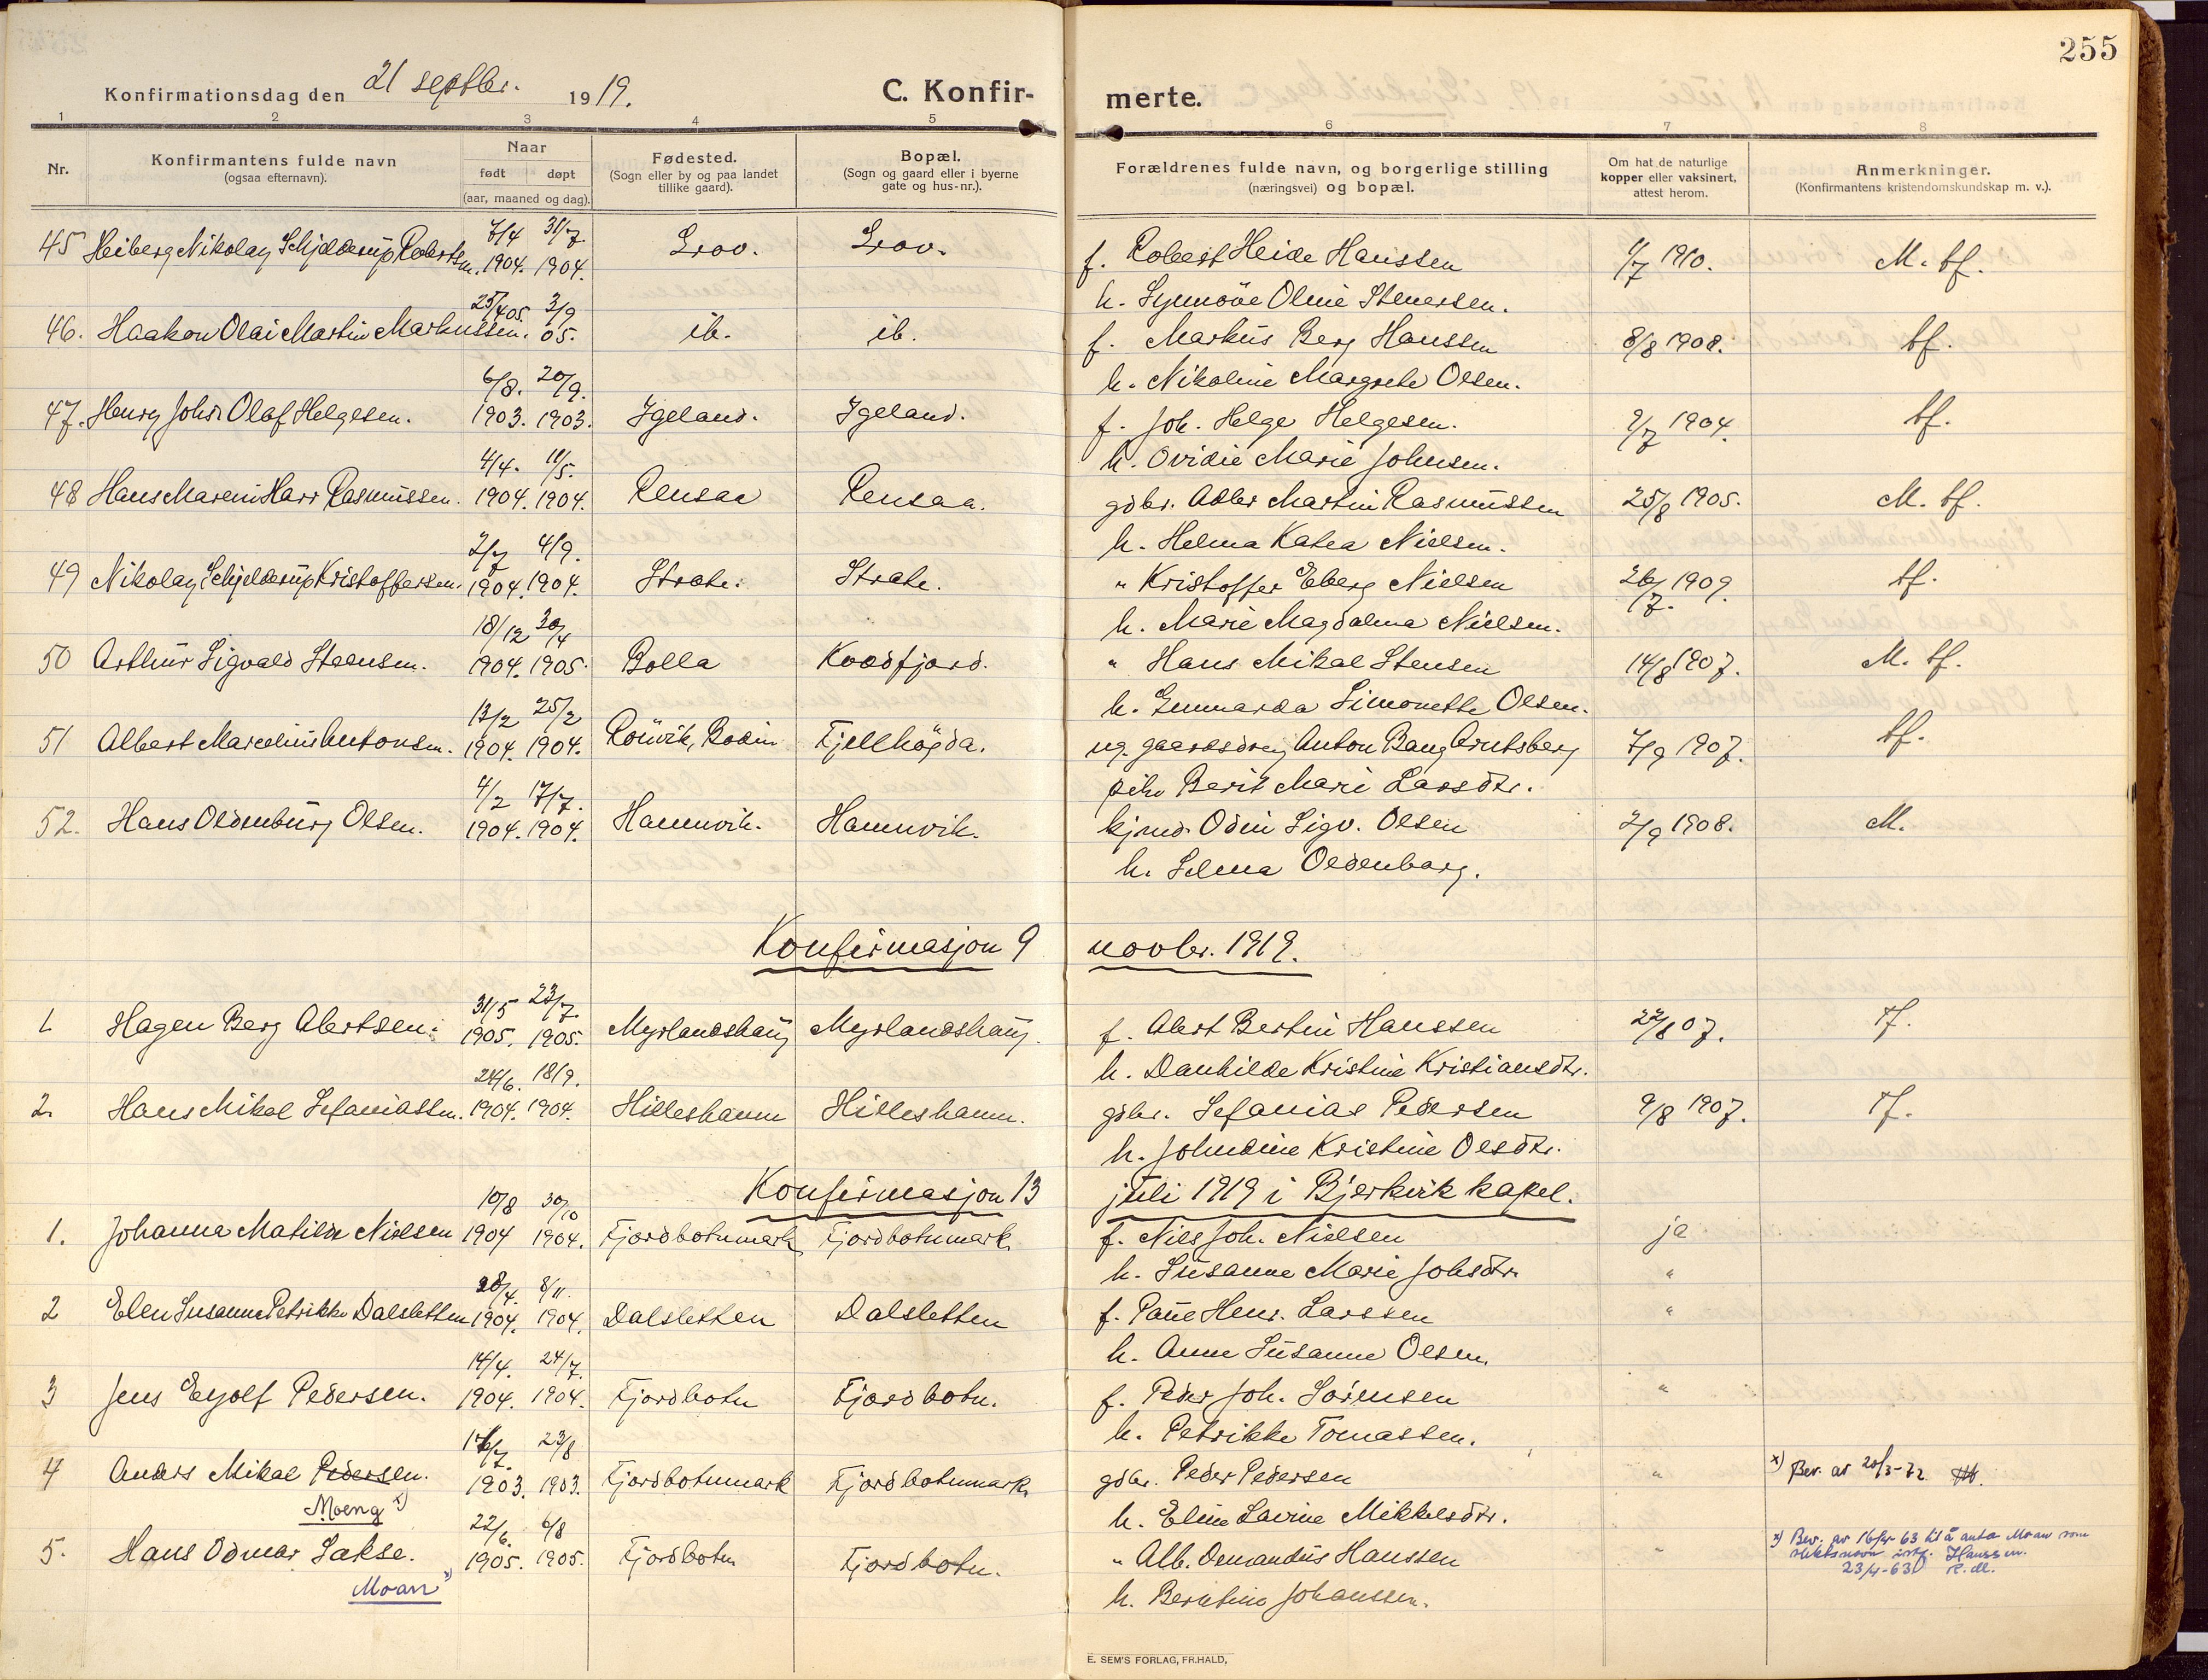 255
Konfirmationsdag den 21 septbr. 1919. C. Konfirmerte.
1 2 3 4 5 6 7 8
Nr.
Konfirmantens fulde navn
(ogsaa efternavn).
Naar
født døpt
(aar, maaned og dag).
Fødested.
(Sogn eller by og paa landet
tillike gaard).
Bopæl.
(Sogn og gaard eller i byerne
gate og hus-nr.).
Forældrenes fulde navn, og borgerlige stilling
(næringsvei) og bopæl.
Om hat de naturlige
kopper eller vaksinert,
attest herom.
Anmerkninger.
(Konfirmantens kristendomskundskap m. v.).
7/4 31/7
45 Heiberg Nikolay Schjelderup Robertsen. 1904. 1904. Grov. Grov. f. Robert Heide Hanssen 1/7 1910. M. tf.
h. Synnöve Oline Stenersen.
25/4 05. 3/9
46. Haakon Olai Martin Markussen. 05. ib. ib. f. Markus Berg Hanssen 8/8 1908. tf.
h. Nikoline Margrete Olsen.
6/8. 20/9.
47. Henry Johr. Olaf Helgesen. 1903. 1903. Igeland. Igeland. f. Joh. Helge Helgesen. 9/7 1904. tf.
h. Ovidie Marie Johnsen.
4/4. 11/5.
48 Hans Mareni Harr Rasmussen. 1904. 1904. Rensaa Rensaa. gdbr. Adler Martin Rasmussen 25/8 1905. M. tf.
h. Helma Katea Nielsen.
2/7 4/9.
49 Nikolay Schjelderup Kristoffersen. 1904. 1904. Strate. Strate. " Kristoffer Eberg Nielsen 26/7. 1909. tf.
h. Marie Magdalena Nielsen.
18/12 30/4
50 Arthur Sigvald Steensen. 1904. 1905. Bolla Kvædfjord. " Hans Mikal Stensen 14/8 1907. M. tf.
h. Gunnarda Simonette Olsen.
13/2 25/2
51 Albert Marcelius Antonsen. 1904. 1904. Rönvik, Bodin Fjellhögda. ug. gaardsdreng Anton Bang Arntsberg 7/9 1907. tf.
pike Berit Marie Larsdtr.
4/2 17/7.
52. Hans Oldenburg Olsen. 1904. 1904. Hamnvik. Hamnvik. kjmd. Odin Sigv. Olsen 2/9 1908. M.
h. Selma Oldenborg.
Konfirmasjon 9 novbr. 1919.
31/5 23/7.
1. Hagen Berg Albertsen. 1905. 1905. Myrlandshaug Myrlandshaug. f. Albert Bertin Hanssen 22/8 07. Tf.
h. Danhilde Kristine Kristiansdtr.
24/6. 18/9.
2. Hans Mikal Sefaniassen. 1904. 1904. Hilleshamn Hilleshamn. gdbr. Sefanias Pedersen 9/8 1907. Tf.
h. Johndine Kristine Olsdtr.
Konfirmasjon 13 juli 1919 i Bjerkvik kapel.
10/8 30/10
1. Johanna Matilde Nielsen 1904 1904. Fjordbotnmark Fjordbotnmark. f. Nils Joh. Nielsen ja
h. Susanne Marie Johsdtr. "
28/4. 8/11.
2 Elen Susanna Petrikke Dalsletten 1904. 1904. Dalsletten Dalsletten f. Paul Henr. Larssen "
h. Anne Susanne Olsen.
14/4. 24/7.
3 Jens Eyolf Pedersen. 1904. 1904. Fjordbotn Fjordbotn. f. Peder Joh. Sörensen "
h. Petrikke Tomassen.
16/7. 23/8
4 Anders Mikal Pedersen. 1903. 1903. Fjordbotnmark Fjordbotnmark. gdbr. Peder Pedersen " x) Bev. av 20/3-72
Moeng x) h. Eline Lavine Mikkelsdtr.
22/6. 6/8
5. Hans Odmar Sakse. 1905. 1905. Fjordbotn Fjordbotn. " Alb. Osmandus Hanssen " x) Bev. av 16/4-63 til å anta Moan som
slektsnavn istf. Hanssen.
23/4-63 R. M.
Moan x) h. Berntine Johanssen.
E. SEM'S FORLAG, FR.HALD,